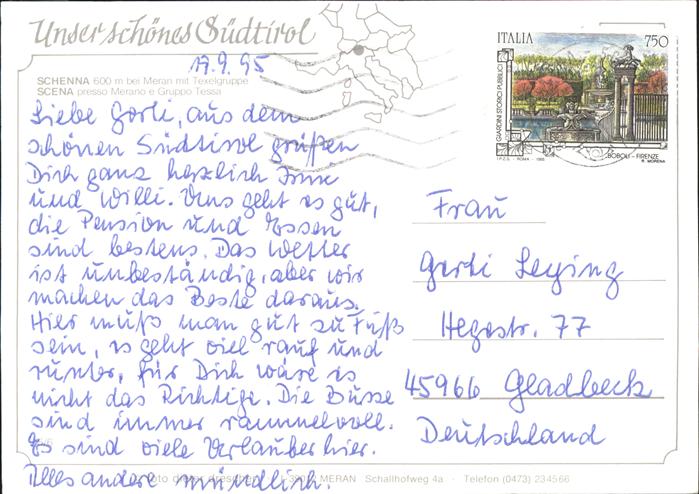 Unser schönes Südtirol
17.9.95
SCHENNA 600 m bei Meran mit Texelgruppe
SCENA presso Merano e Gruppo Tessa
Liebe Gerti, aus dem
schönen Südtirol grüßen
Dich ganz herzlich Irme
und Willi. Uns geht es gut,
die Pension und Essen
sind bestens. Das Wetter
ist unbeständig, aber wir
machen das Beste daraus.
Hier muß man gut zu Fuß
sein, es geht viel rauf und
runter, für Dich wäre es
nicht das Richtige. Die Busse
sind immer rammelvoll.
Es sind viele Urlauber hier.
Alles andere mündlich.
MERAN Schallhofweg 4a · Telefon (0473) 234566
ITALIA 750
GIARDINI STORICI PUBBLICI
I.P.Z.S. - ROMA - 1995
BOBOLI - FIRENZE
R. MORENA
Frau
Gerti Leying
Hegestr. 77
45966 Gladbeck
Deutschland